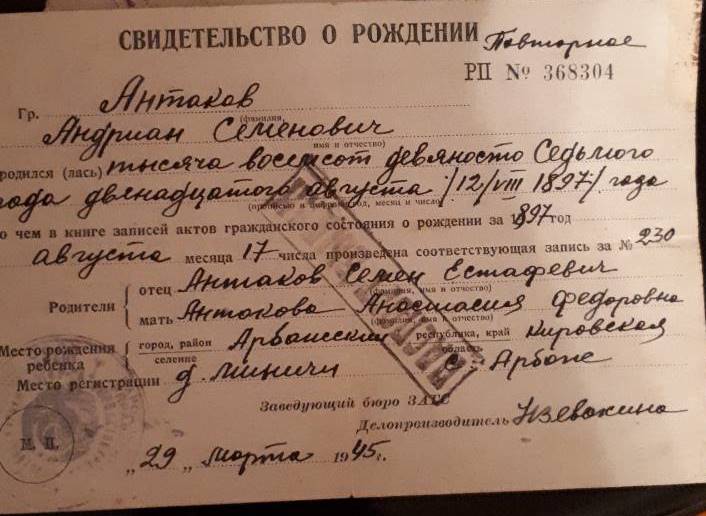 СВИДЕТЕЛЬСТВО О РОЖДЕНИИ Повторное
РП № 368304
Гр. Антаков
(фамилия,
Андриан Семенович
имя и отчество)
родился (лась) тысяча восемсот девяносто Седьмого
года двенадцатого августа /12/VIII 1897/ года
(прописью и цифрами год, месяц и число)
о чем в книге записей актов гражданского состояния о рождении за 1897 год
августа месяца 17 числа произведена соответствующая запись за № 230
Родители
отец Антаков Семен Естафевич
(фамилия, имя и отчество)
мать Антакова Анастасия Федоровна
(фамилия, имя и отчество)
Место рождения ребенка
город, район Арбашский республика, край Кировская
селение область
Место регистрации д. Миничи с. Арбаже
Заведующий бюро ЗАГС
Делопроизводитель
М. П.
"29" марта 1945 г.